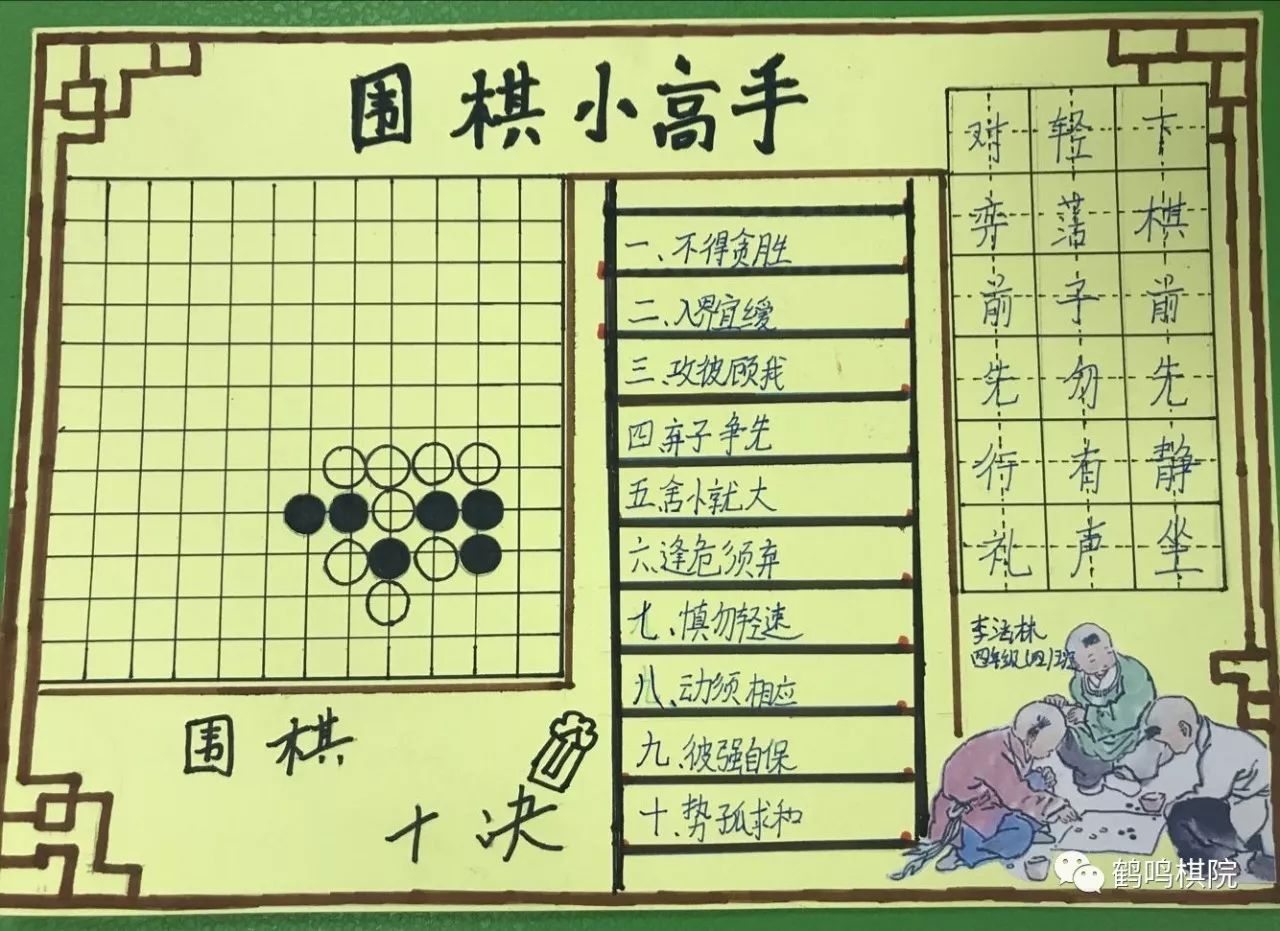 围棋小高手
一、不得贪胜
二、入界宜缓
三、攻彼顾我
四弃子争先
五、舍小就大
六、逢危须弃
七、慎勿轻速
八、动须相应
九、彼强自保
十、势孤求和
围棋
十决
下棋前先静坐
轻落子勿有声
对弈前先行礼
李法林
四年级(四)班
鹤鸣棋院